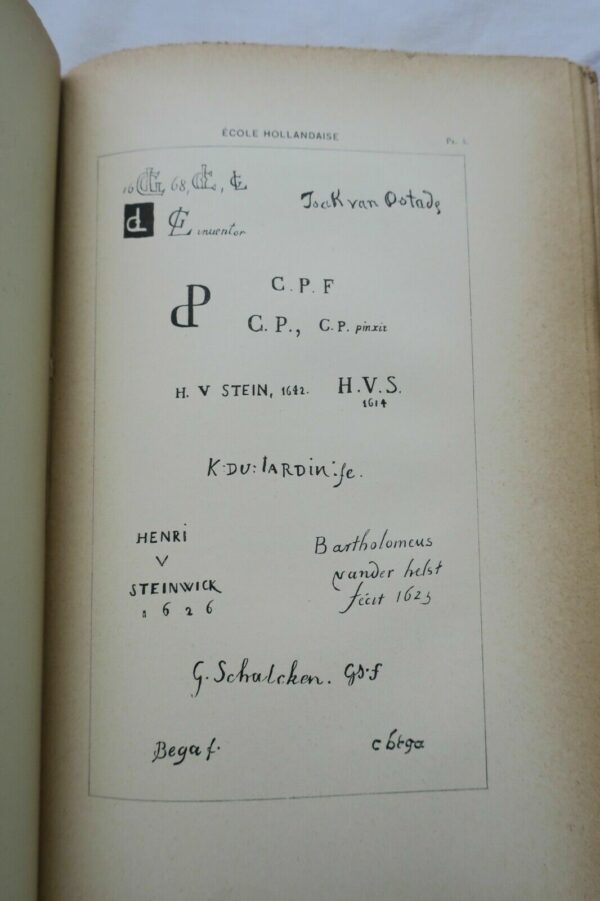 ÉCOLE HOLLANDAISE
PL. 
16 68,
Isack van Ostade
inventor
C. P. F
C. P., C. P. pinxit
H. V STEIN, 1642. H. V. S.
1614
K:DU:IARDIN:fe.
HENRI
V
STEINWICK
1626
Bartholomeus
vander helst
fécit 1625
G. Schalcken. GS.f
Bega f.
c bega